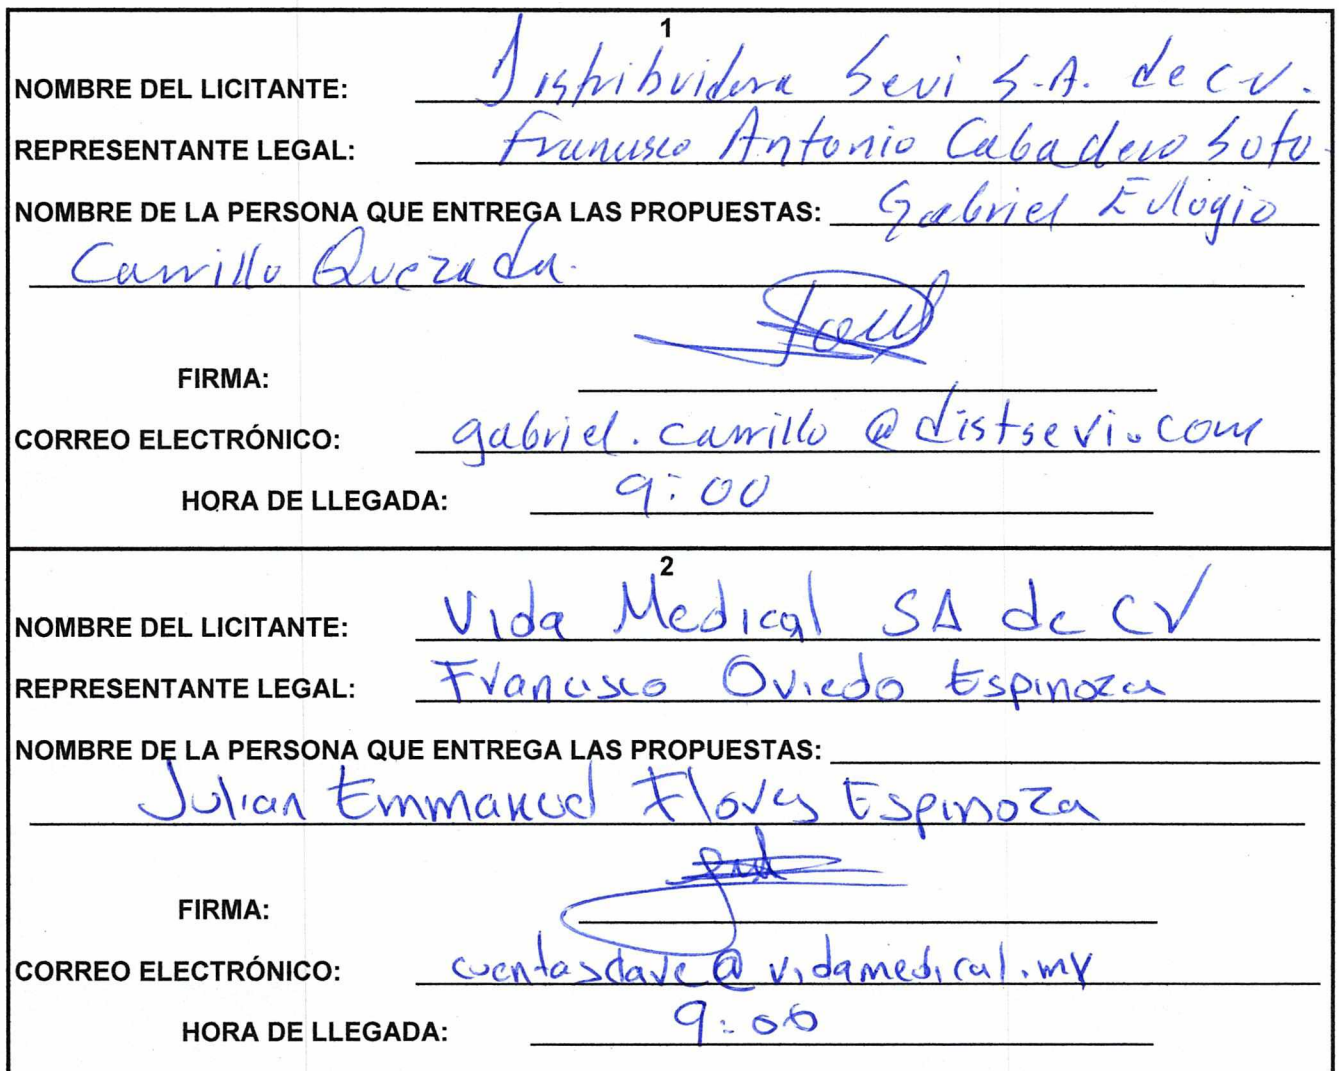 1
NOMBRE DEL LICITANTE: Distribuidora Sevi S.A. de C.V.
REPRESENTANTE LEGAL: Francisco Antonio Cabadero Soto
NOMBRE DE LA PERSONA QUE ENTREGA LAS PROPUESTAS: Gabriel Eulogio
Carrillo Quezada.
FIRMA:
CORREO ELECTRÓNICO: gabriel.carrillo@distsevi.com
HORA DE LLEGADA: 9:00
2
NOMBRE DEL LICITANTE: Vida Medical SA de CV
REPRESENTANTE LEGAL: Francisco Oviedo Espinoza
NOMBRE DE LA PERSONA QUE ENTREGA LAS PROPUESTAS:
Julian Emmanuel Flores Espinoza
FIRMA:
CORREO ELECTRÓNICO: cuentasclave@vidamedical.mx
HORA DE LLEGADA: 9:00